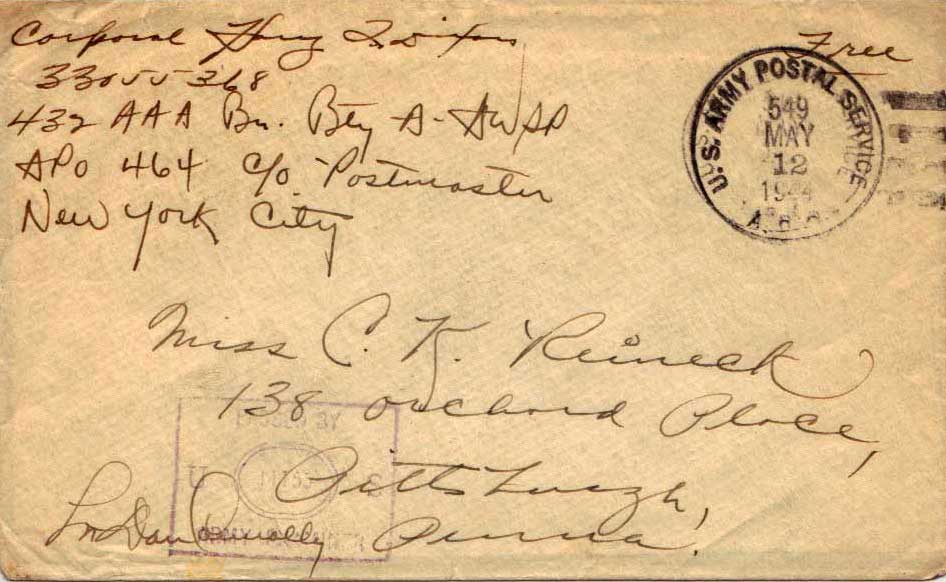 Corporal
Free
33055368
432 AAA Bn. Bty A- AWSP
APO 464 c/o Postmaster
New York City
U.S. ARMY POSTAL SERVICE
549
MAY
12
1944
A.P.O.
Miss C. K. Reineck
138 Orchard Place,
Pittsburgh,
Penna.
PASSED BY
U S
ARMY EXAMINER